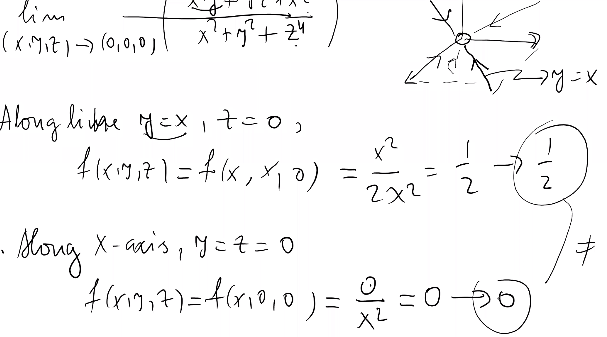 lim
(x,y,z) → (0,0,0)
x² + y² + z⁴
y = x
Along line y = x, z = 0,
f(x,y,z) = f(x, x, 0) = x²/2x² = 1/2 → 1/2
≠
. Along x-axis, y = z = 0
f(x,y,z) = f(x,0,0) = 0/x² = 0 → 0